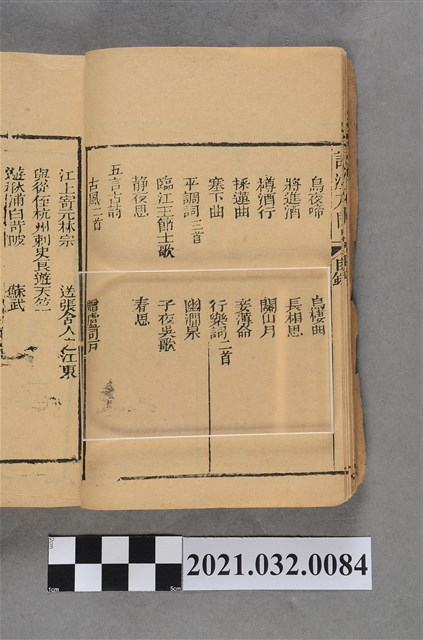 烏夜啼 烏棲曲
將進酒 長相思
樽酒行 關山月
採蓮曲 妾薄命
塞下曲 行樂詞二首
平調詞三首 幽澗泉
臨江王節士歌 子夜吳歌
靜夜思 春思
五言古詩
古風二首
江上寄元林宗 送張舍人之江東
與從侄杭州刺史良遊天竺
遊秋浦白笴陂 蘇武
2021.032.0084
2cm
1cm
5cm